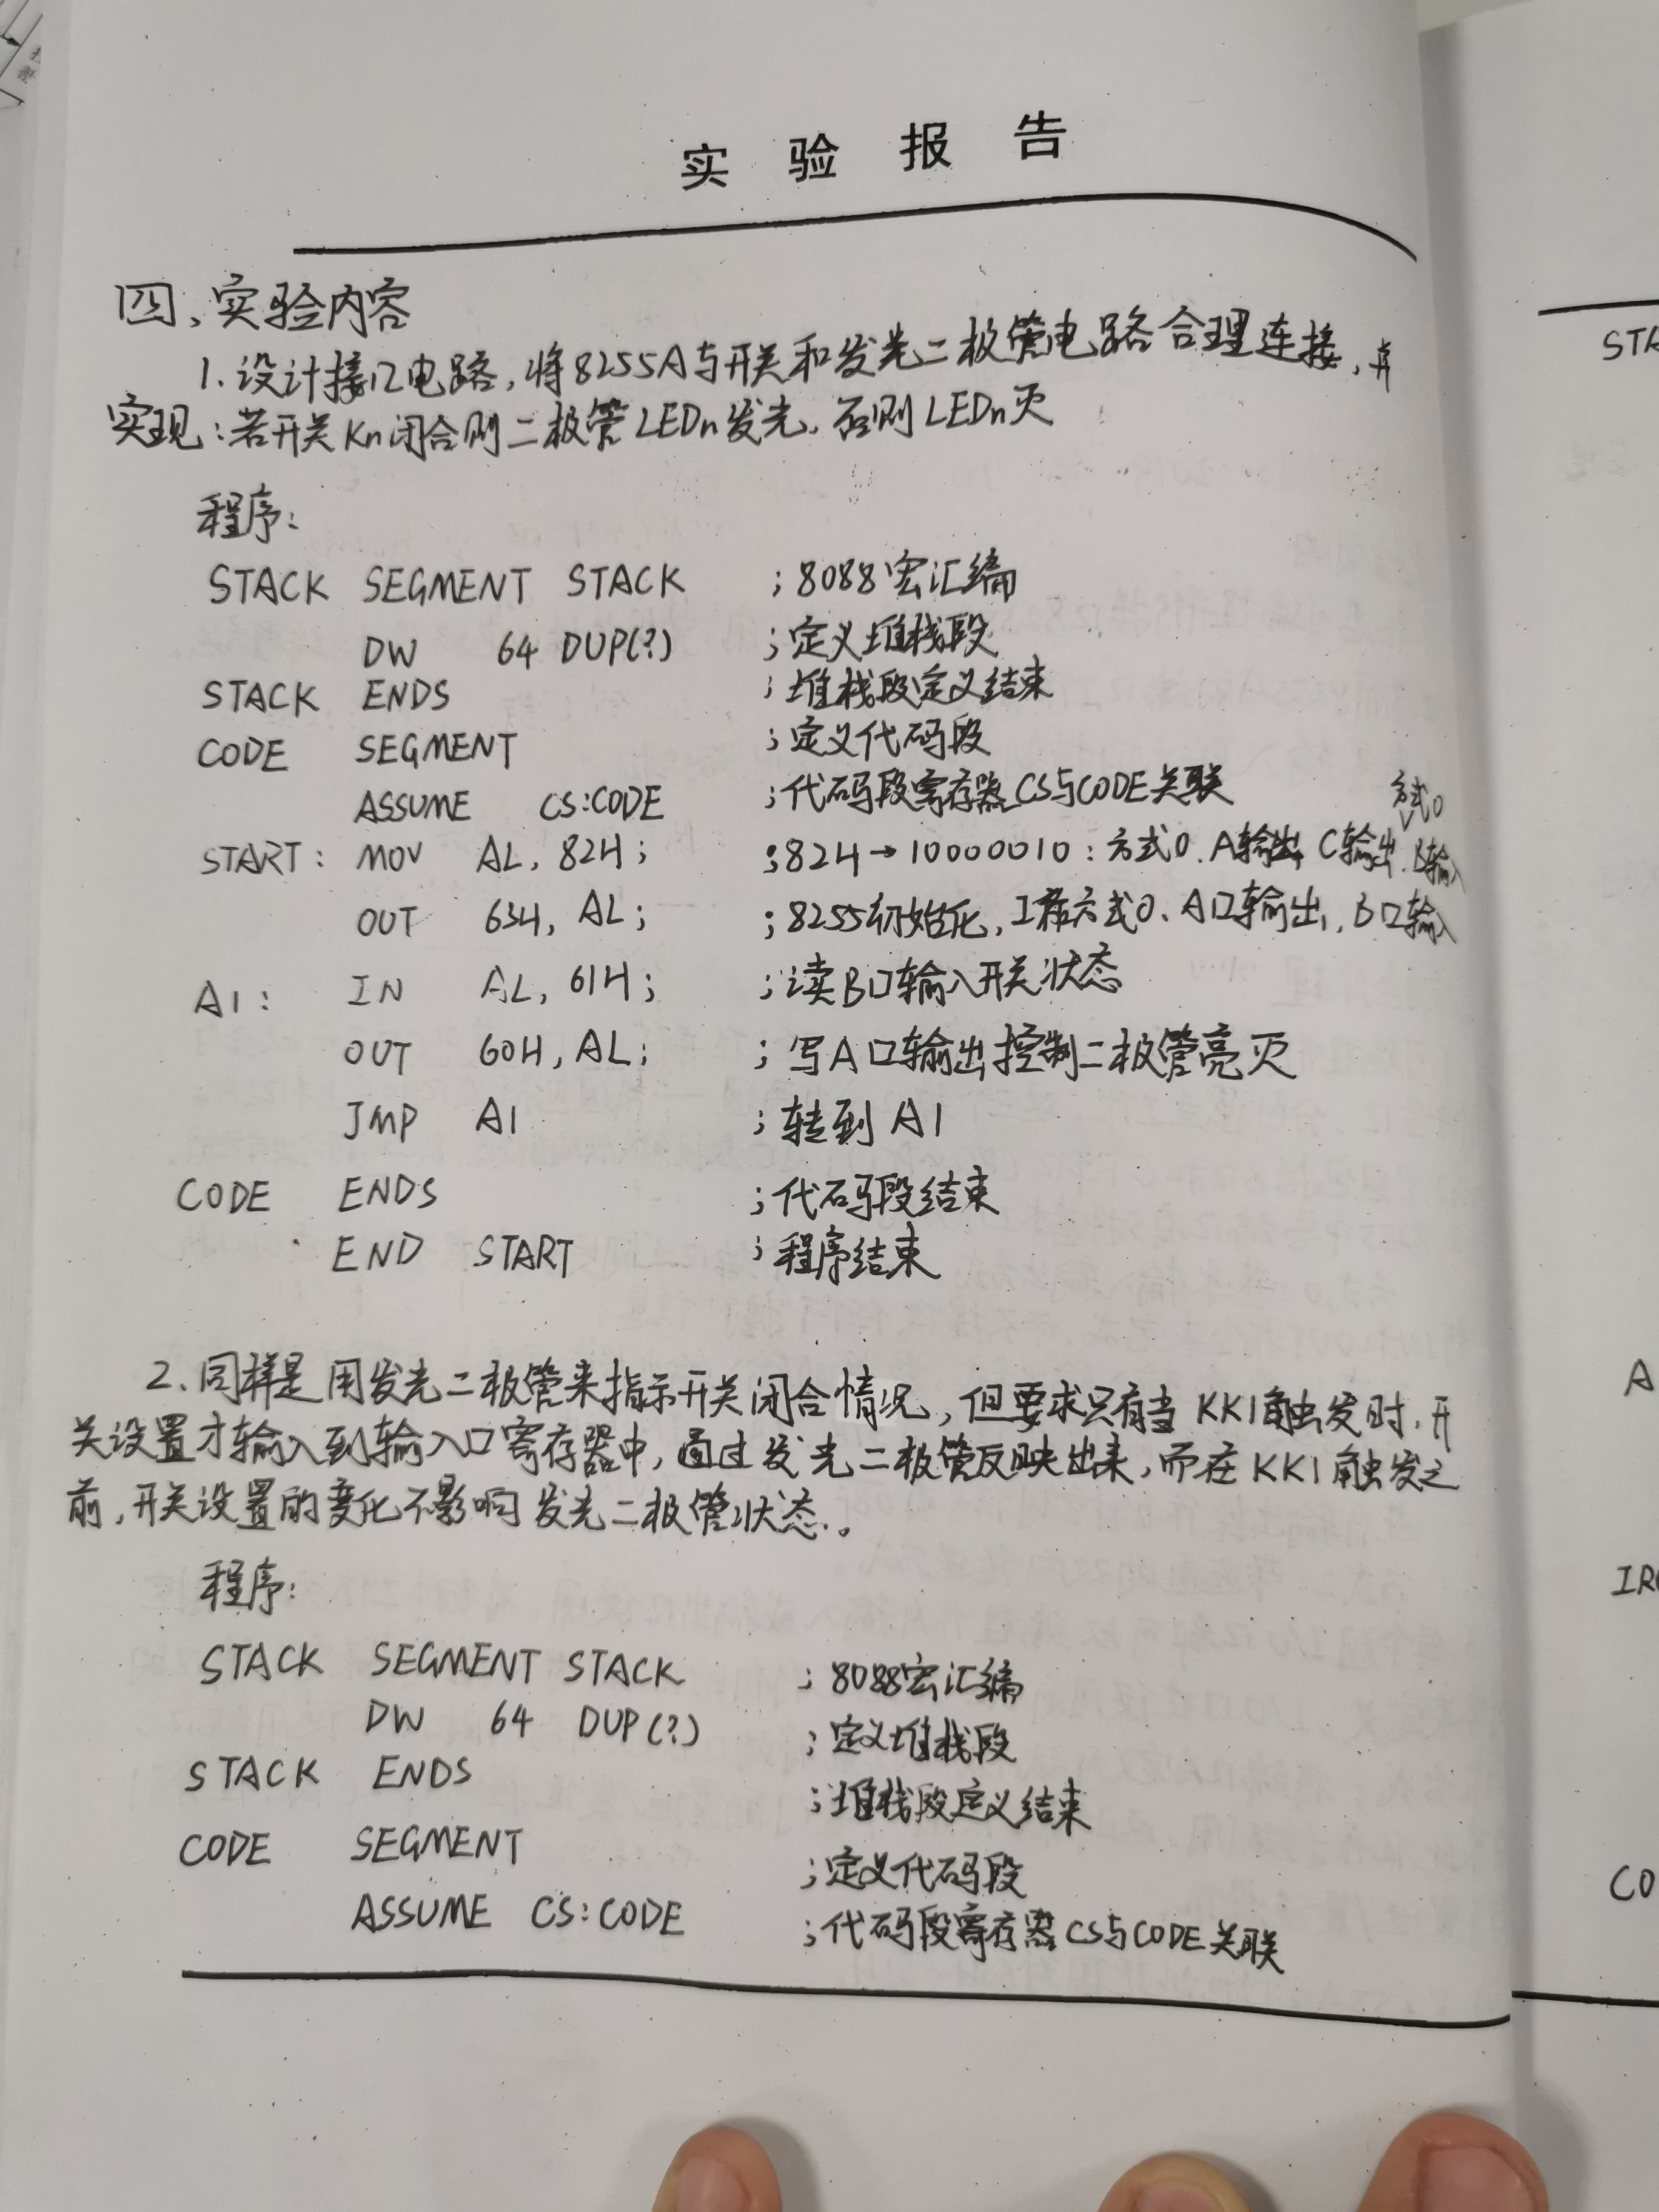 实验报告
四、实验内容
1.设计接口电路,将8255A与开关和发光二极管电路合理连接,并
实现:若开关Kn闭合则二极管LEDn发光,否则LEDn灭
程序:
STACK SEGMENT STACK ;8088宏汇编
DW 64 DUP(?) ;定义堆栈段
STACK ENDS ;堆栈段定义结束
CODE SEGMENT ;定义代码段
ASSUME CS:CODE ;代码段寄存器CS与CODE关联
方式0
START: MOV AL, 82H; ;82H→10000010:方式0.A输出,C输出.B输入
OUT 63H, AL; ;8255初始化,工作方式0、A口输出,B口输入
A1: IN AL, 61H; ;读B口输入开关状态
OUT 60H, AL; ;写A口输出控制二极管亮灭
JMP A1 ;转到A1
CODE ENDS ;代码段结束
END START ;程序结束
2.同样是用发光二极管来指示开关闭合情况,但要求只有当KK1触发时,开
关设置才输入到输入口寄存器中,通过发光二极管反映出来,而在KK1触发之
前,开关设置的变化不影响发光二极管状态。
程序:
STACK SEGMENT STACK ;8088宏汇编
DW 64 DUP(?) ;定义堆栈段
STACK ENDS ;堆栈段定义结束
CODE SEGMENT ;定义代码段
ASSUME CS:CODE ;代码段寄存器CS与CODE关联
STA
A
IR
CO